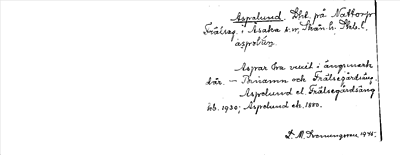 Aspolund. Lht. på Nattorp
Frälseg. i Åsaka s:n, Skån. h. Skb. l.
áspolún̄.
Aspar bra vuxit i ängsmark
där. – Skriamn och Frälsegårdsäng.
Aspolund el. Frälsegårdsäng
jb. 1930; Aspolund ek. 1880.
D. M. Svenungsson 1945.